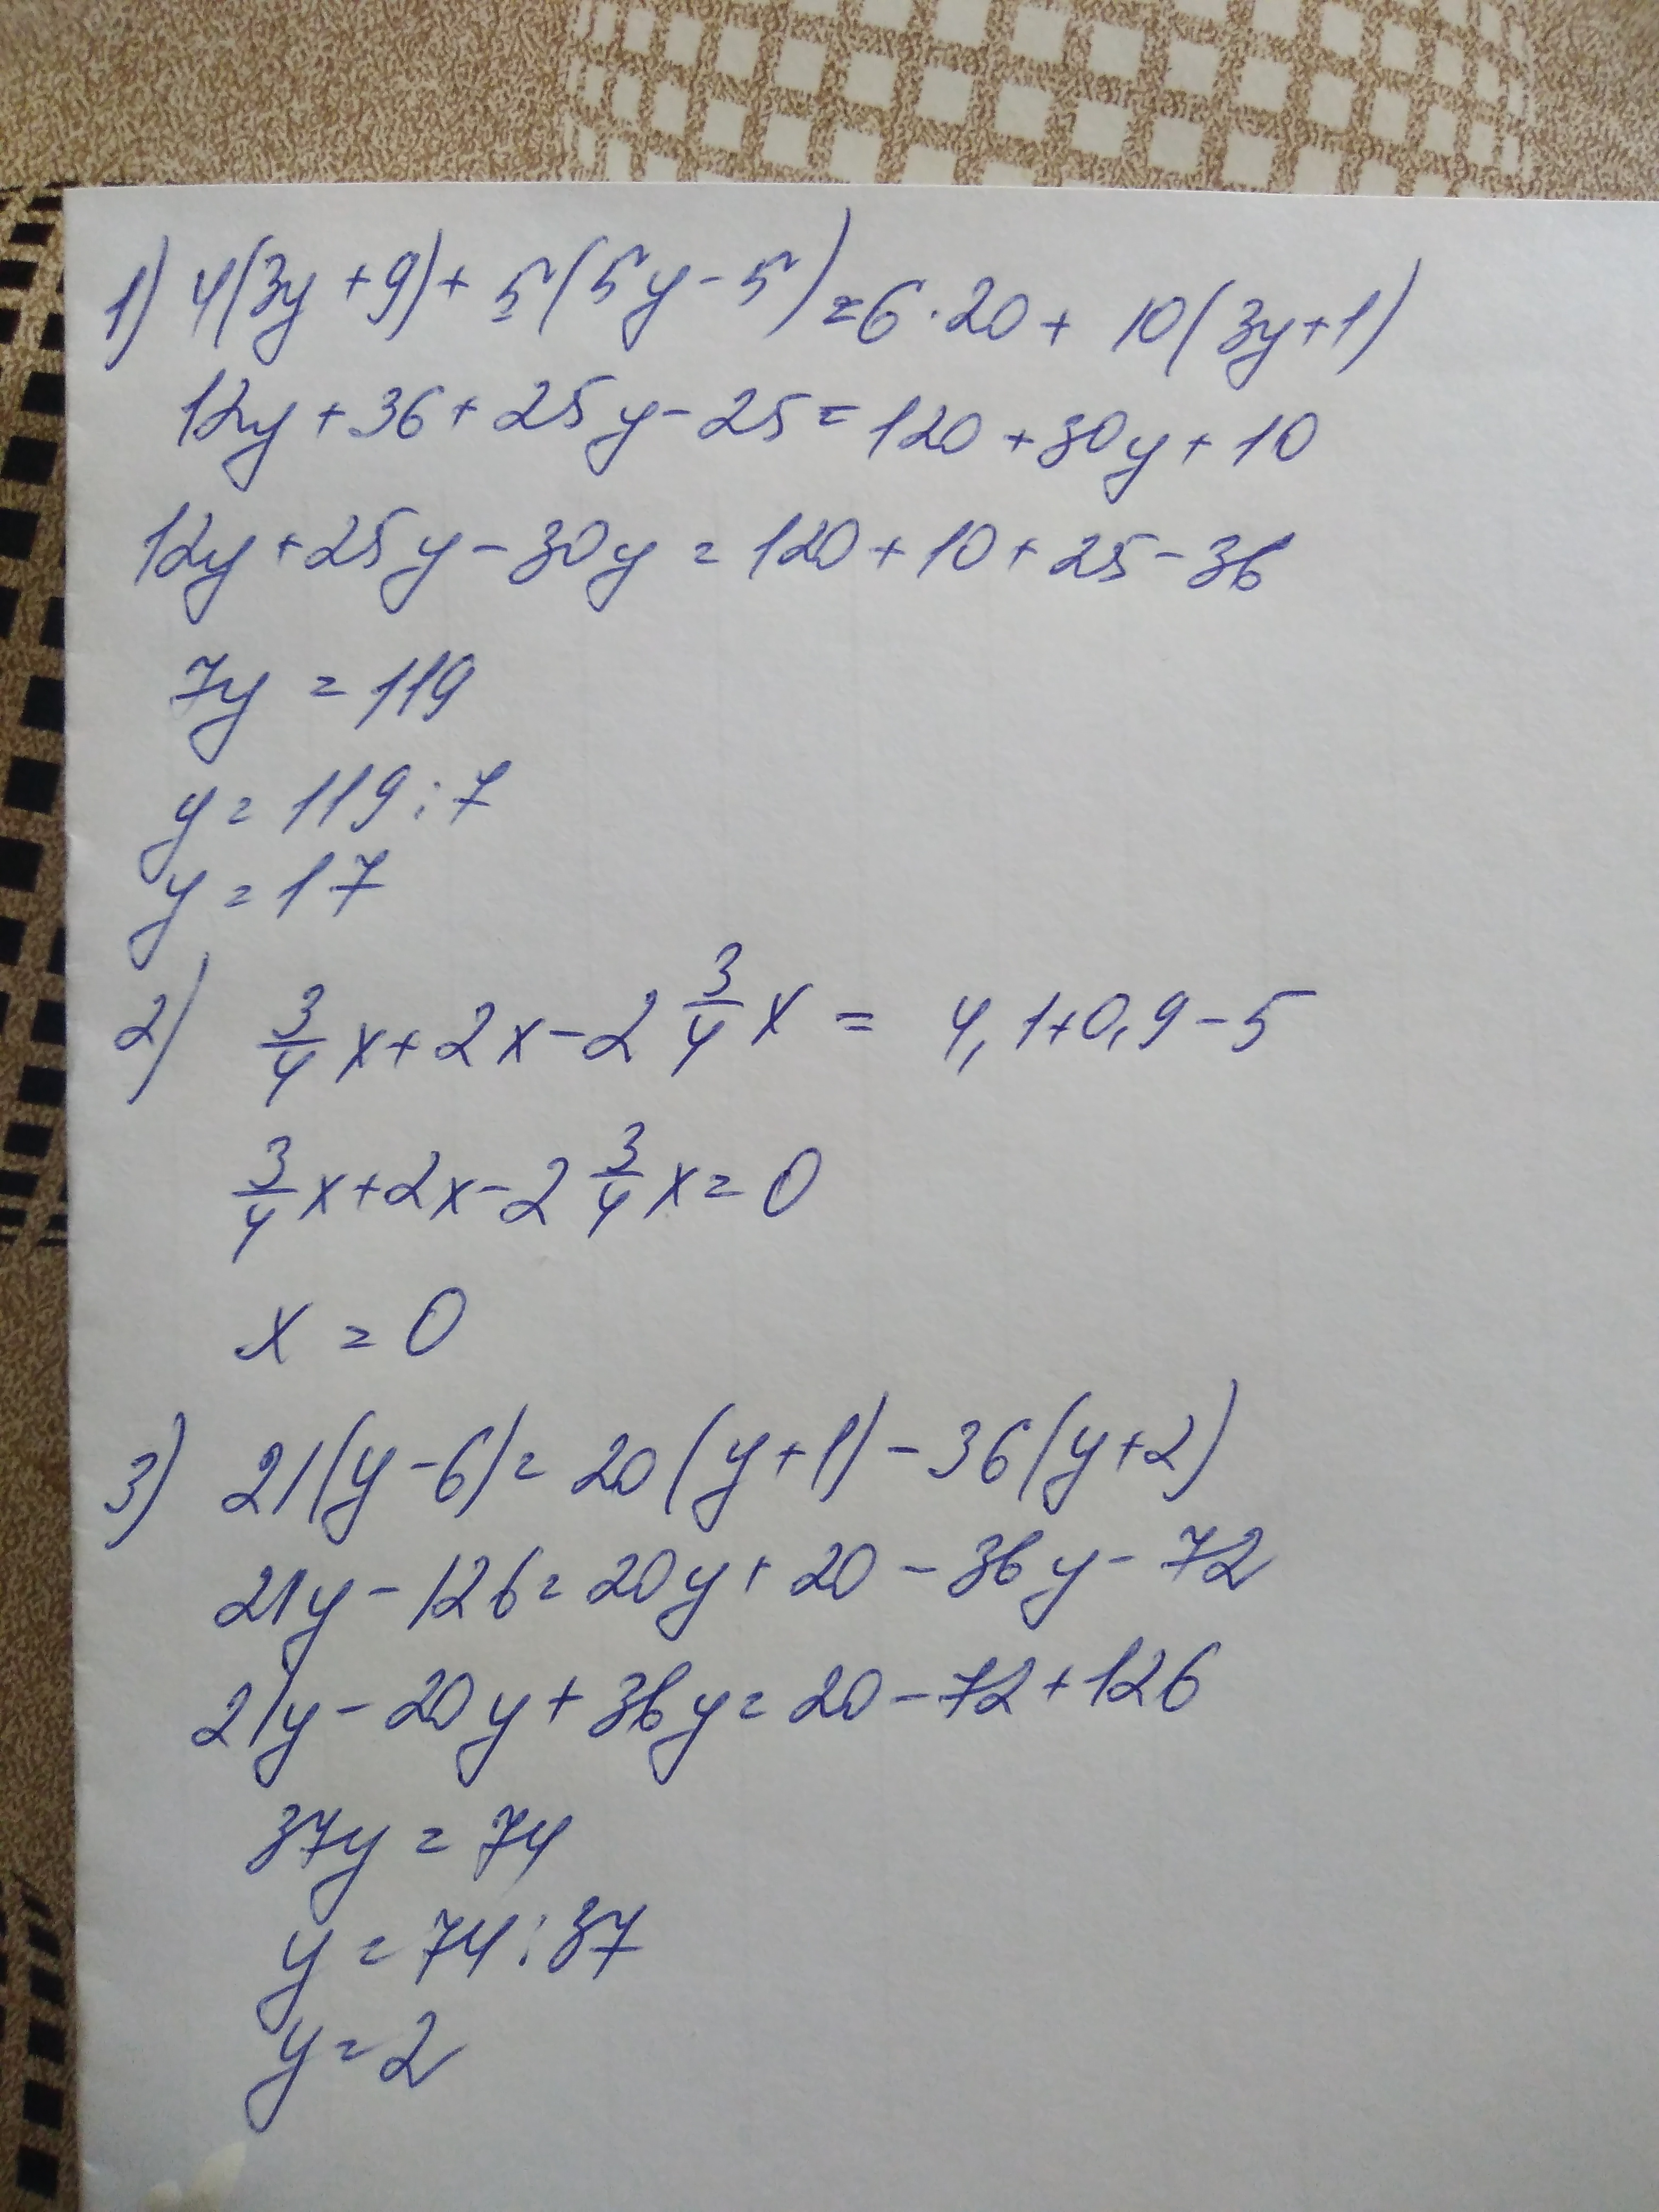 1) 4(3y+9)+5(5y-5)=6·20+10(3y+1)
12y+36+25y-25=120+30y+10
12y+25y-30y=120+10+25-36
7y=119
y=119:7
y=17
2) 3/4x+2x-2 3/4x=4,1+0,9-5
3/4x+2x-2 3/4x=0
x=0
3) 21(y-6)=20(y+1)-36(y+2)
21y-126=20y+20-36y-72
21y-20y+36y=20-72+126
37y=74
y=74:37
y=2